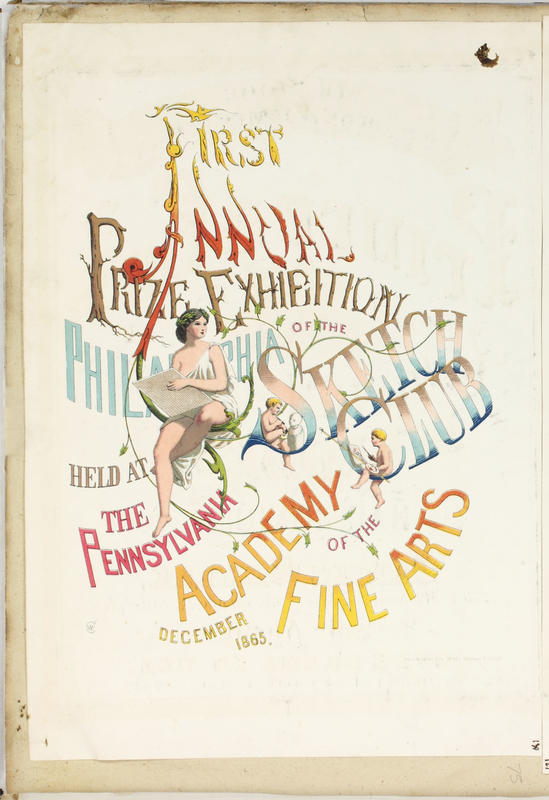 FIRST
ANNUAL
PRIZE EXHIBITION
OF THE
PHILADELPHIA
SKETCH
CLUB
HELD AT
THE
PENNSYLVANIA
ACADEMY
OF THE
FINE ARTS
DECEMBER
1865.